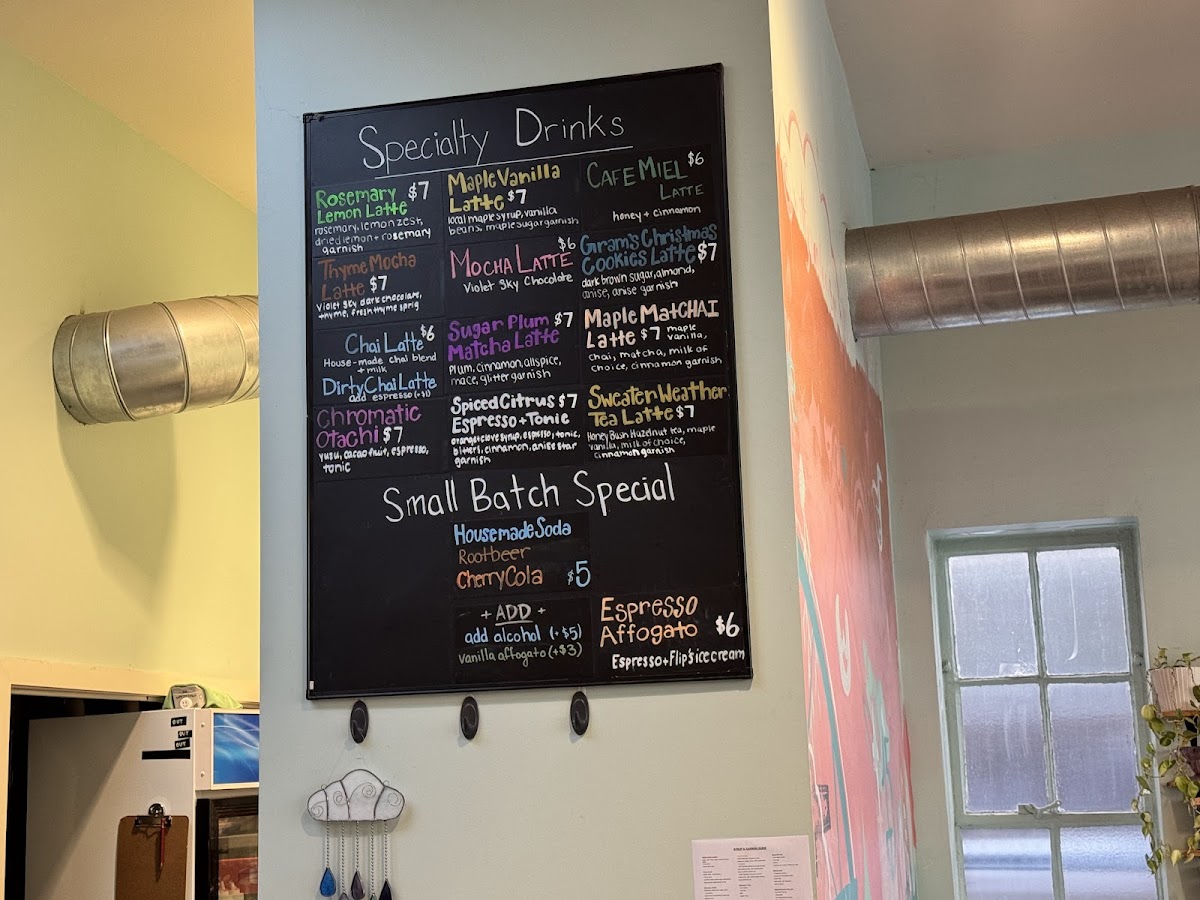 Specialty Drinks
Rosemary $7
Lemon Latte
rosemary, lemon zest,
dried lemon + rosemary
garnish
Thyme Mocha
Latte $7
Violet Sky dark chocolate,
thyme, fresh thyme sprig
Chai Latte $6
House-made chai blend
+ milk
Dirty Chai Latte
add espresso (+$1)
Chromatic
Otachi $7
yuzu, cacao fruit, espresso,
tonic
Maple Vanilla
Latte $7
local maple syrup, vanilla
beans, maple sugar garnish
$6
Mocha Latte
Violet Sky Chocolate
Sugar Plum $7
Matcha Latte
Plum, cinnamon, allspice,
mace, glitter garnish
Spiced Citrus $7
Espresso + Tonic
orange clove syrup, espresso, tonic,
bitters, cinnamon, anise star
garnish
Cafe Miel $6
Latte
honey + cinnamon
Gram's Christmas
Cookies Latte $7
dark brown sugar, almond,
anise, anise garnish
Maple MatCHAI
Latte $7 maple
vanilla,
chai, matcha, milk of
choice, cinnamon garnish
Sweater Weather
Tea Latte $7
Honey Bush Hazelnut tea, maple
vanilla, milk of choice,
cinnamon garnish
Small Batch Special
Housemade Soda
Rootbeer
Cherry Cola $5
+ ADD +
add alcohol (+$5)
vanilla affogato (+$3)
Espresso
Affogato $6
Espresso + Flip's ice cream
OUT
OUT
OUT